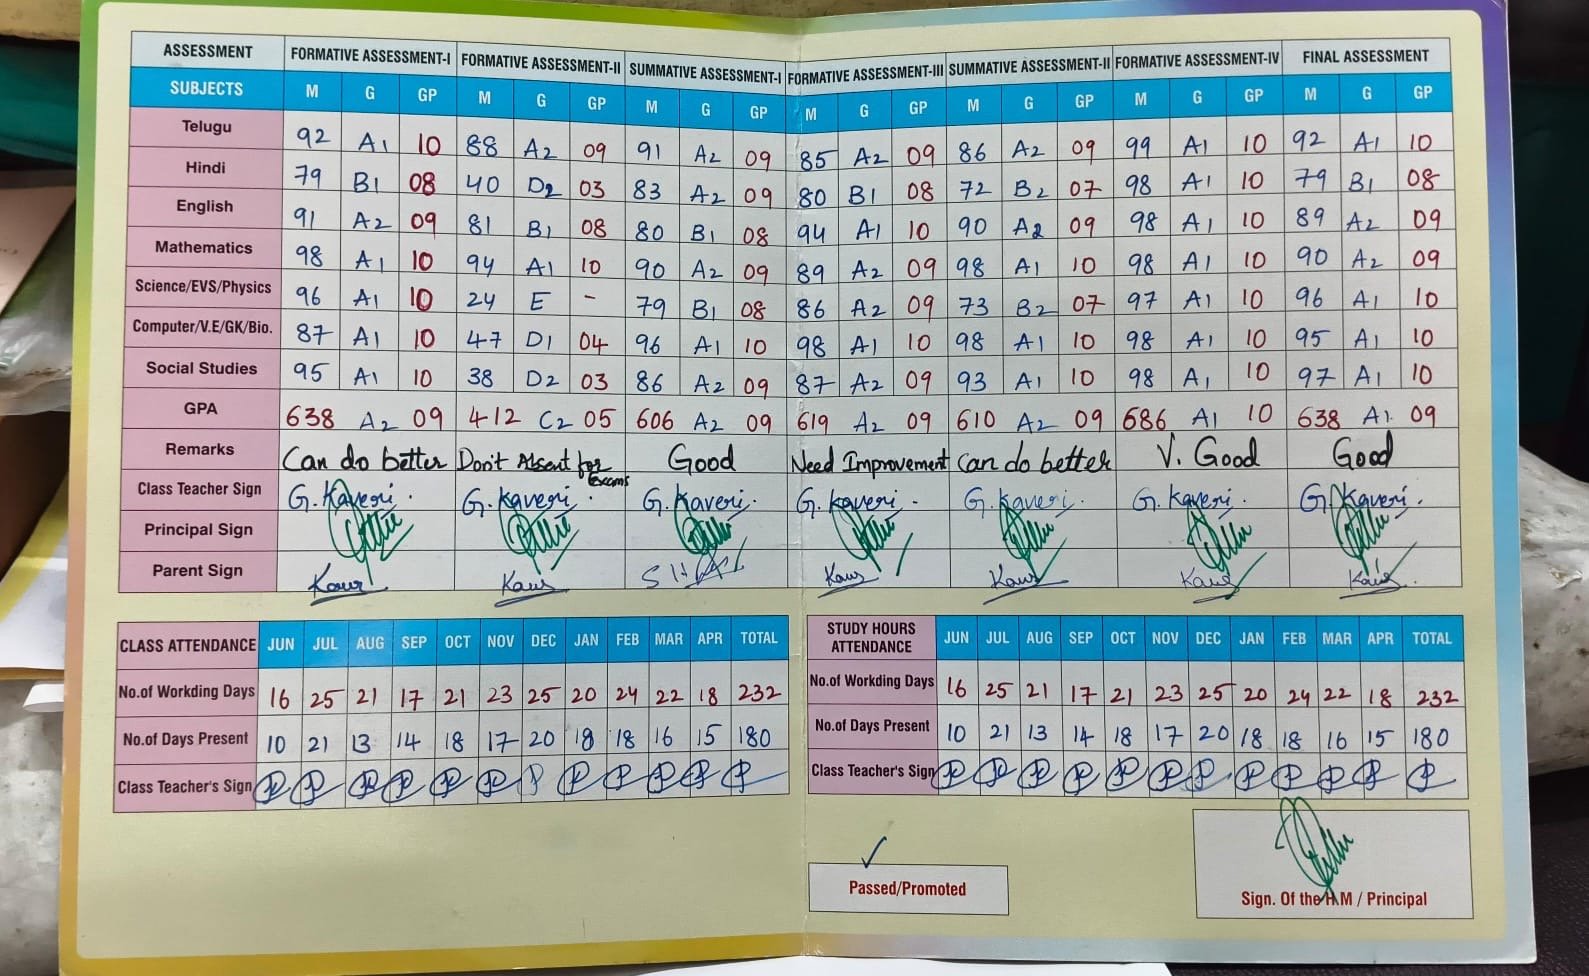 ASSESSMENT FORMATIVE ASSESSMENT-I FORMATIVE ASSESSMENT-II SUMMATIVE ASSESSMENT-I FORMATIVE ASSESSMENT-III SUMMATIVE ASSESSMENT-II FORMATIVE ASSESSMENT-IV FINAL ASSESSMENT
SUBJECTS M G GP M G GP M G GP M G GP M G GP M G GP M G GP
Telugu 92 A1 10 88 A2 09 91 A2 09 85 A2 09 86 A2 09 99 A1 10 92 A1 10
Hindi 79 B1 08 40 D2 03 83 A2 09 80 B1 08 72 B2 07 98 A1 10 79 B1 08
English 91 A2 09 81 B1 08 80 B1 08 94 A1 10 90 A2 09 98 A1 10 89 A2 09
Mathematics 98 A1 10 94 A1 10 90 A2 09 89 A2 09 98 A1 10 98 A1 10 90 A2 09
Science/EVS/Physics 96 A1 10 24 E - 79 B1 08 86 A2 09 73 B2 07 97 A1 10 96 A1 10
Computer/V.E/GK/Bio. 87 A1 10 47 D1 04 96 A1 10 98 A1 10 98 A1 10 98 A1 10 95 A1 10
Social Studies 95 A1 10 38 D2 03 86 A2 09 87 A2 09 93 A1 10 98 A1 10 97 A1 10
GPA 638 A2 09 412 C2 05 606 A2 09 619 A2 09 610 A2 09 686 A1 10 638 A1 09
Remarks Can do better Don't Absent for exams Good Need Improvement can do better V. Good Good
Class Teacher Sign G. Kaveri. G. Kaveri. G. Kaveri. G. Kaveri. G. Kaveri. G. Kaveri. G. Kaveri.
Principal Sign
Parent Sign
CLASS ATTENDANCE JUN JUL AUG SEP OCT NOV DEC JAN FEB MAR APR TOTAL
No.of Workding Days 16 25 21 17 21 23 25 20 24 22 18 232
No.of Days Present 10 21 13 14 18 17 20 18 18 16 15 180
Class Teacher's Sign
STUDY HOURS
ATTENDANCE JUN JUL AUG SEP OCT NOV DEC JAN FEB MAR APR TOTAL
No.of Workding Days 16 25 21 17 21 23 25 20 24 22 18 232
No.of Days Present 10 21 13 14 18 17 20 18 18 16 15 180
Class Teacher's Sign
Passed/Promoted
Sign. Of the H.M / Principal